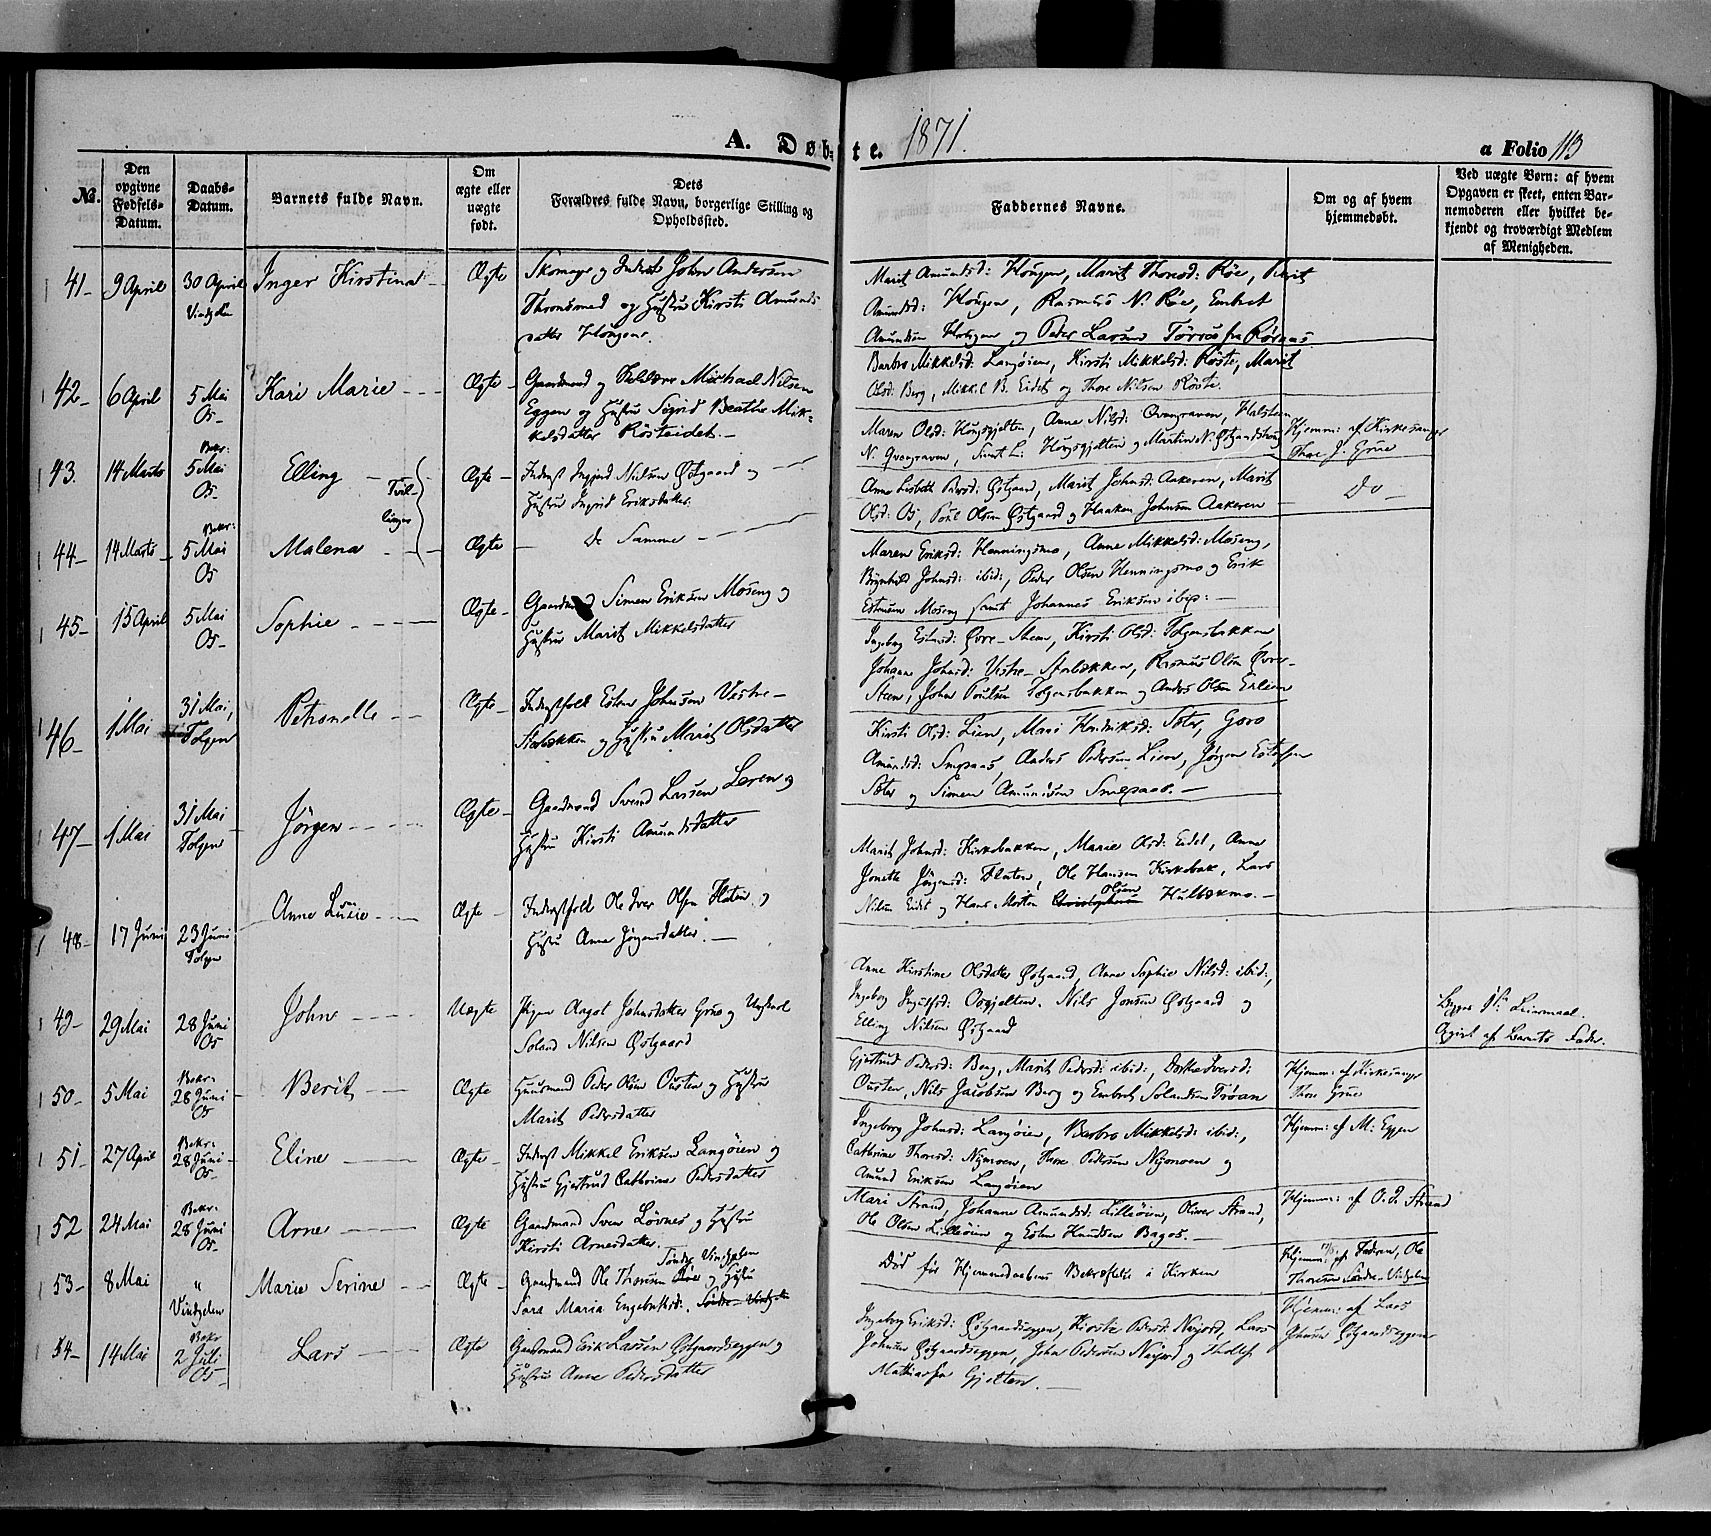 A. Døb- te. 1871.
a Folio 113
№.
Den opgivne Fødsels-Datum.
Daabs-Datum.
Barnets fulde Navn.
Om ægte eller uægte født.
Dets Forældres fulde Navn, borgerlige Stilling og Opholdssted.
Faddernes Navne.
Om og af hvem hjemmedøbt.
Ved uægte Børn: af hvem Opgaven er skeet, enten Barnemoderen eller hvilket bekjendt og troværdigt Medlem af Menigheden.
41- 9 April 30 April Inger Kirstina Ægte Skomager og Inderst John Andersen
Vindgelen
og Hustru Kirsti Amunds
datter Hougen.
Marit Amundsd: Hougen, Marit Thoresd: Røe, Berit
Amundsd: Hougen, Rasmus N. Røe, Embret
Amundsen Hougen og Peder Larsen fra Rørraas
42- 6 April 5 Mai Kari Marie Ægte Gaardmand og Michael Nilsen
Os-
Eggen og Hustru Sigrid Beathe Mik-
kelsdatter Røsteidet.-
Barbro Mikkelsd: Langøien, Kirsti Mikkelsd: Røste, Marit
Olsd: Berg, Mikkel B. Eidet og Thore Nilsen Røste.
43. 14 Marts Bekr: 5 Mai Elling Ægte- Inderst Ingvald Nielsen Østgaard og
Os- Tvil-
linger
Hustru Ingrid Eriksdatter.
Maren Olsd: Hougsgjelten, Anne Nilsd: Qvengraven, Halsteen
N. Qvengraven, Simet L: Hougsgjelten og Martin N. Østgaardstrøen
Hjemm: af Kirkesanger
Thore J. Grue
44- 14 Marts Bekr: 5 Mai Malena Ægte De Samme
Os
Anne Lisbeth Pedersd: Østgaard, Marit Johnsd: Aakeren, Marit
Olsd: Os, Pohl Olsen Østgaard og Haaken Johnsen Aakeren
Do-
45- 15 April 5 Mai Sophie Ægte- Gaardmand Simen Eriksen Moseng og
Os-
Hustru Marit Mikkelsdatter
Maren Eriksd: Henningsmo, Anne Mikkelsd: Moseng,
Brynhild Johnsd: ibid:, Peder Olsen Henningsmo og Erik
Estensen Moseng samt Johannes Eriksen ibid: -
46- 1 Mai 31 Mai, Petronelle Ægte- Inderstfolk Esten Johnsen Vestre-
Tolgen
Storbækken og Hustru Marit Olsdatter
Ingeborg Estensd: Øvre-Steen, Kirsti Olsd: Tolgensbakken,
Johane Johnsd: Vestre-Storbækken, Rasmus Olsen Øvre-
Steen, John Poulsen Tolgensbakken og Anders Olsen Erlien
47- 1 Mai 31 Mai Jørgen Ægte- Gaardmand Svend Larsen Leeren og
Tolgen
Hustru Kirsti Amundsdatter
Kirsti Olsd: Lien, Mari Hendriksd: Sæter, Goro
Amundsd: Smedaas, Anders Pedersen Lien, Jørgen Estensen
Sæter og Simen Amundsen Smedaas. -
48- 17 Juni 23 Juni Anne Lucie Ægte- Inderstfolk Ole Iver Olsen Flaten og
Tolgen
Hustru Anne Jørgensdatter. -
Marit Johnsd: Kirkebakken, Marie Olsd: Eidet, Anne
Jonette Jørgensd: Flaten, Ole Hansen Kirkebak, Lars
Nilsen Eidet og Hans-Morten Olsen Hulbækmo. -
49- 29 Mai 28 Juni John Uægte Pigen Aagot Johnsdatter Grue og Ungkarl
Os
Soland Nilsen Østgaard
Anne Kirstine Olsdatter Østgaard, Anne Sophie Nilsd: ibid:,
Ingeborg Ingulfsd: Osgjelten. Nils Jonsen Østgaard og
Elling Nilsen Østgaard
Begges 1ste Leiermaal.
Opgivet af Barnets Fader.
50- 5 Mai Bekr: 28 Juni Berit Ægte Huusmand Peder Olsen Ousten og Hustru
Os
Marit Pedersdatter
Gjertrud Pedersd: Berg, Marit Pedersd: ibid:, Dorthe Iversd:
Ousten, Nils Jacobsen Berg og Embret Solandsen Trøan
Hjemm: af Kirkesanger
Thore Grue
51- 27 April Bekr: 28 Juni Eline Ægte- Inderst Mikkel Eriksen Langøien og
Os-
Hustru Gjertrud Cathrine Pedersdatter
Ingeborg Johnsd: Langøien, Barbro Mikkelsd: ibid:,
Cathrine Thoresd: Nymoen, Thore Pedersen Nymoen og
Amund Eriksen Langøien
Hjemm: af M: Eggen
52 24 Mai Bekr: 28 Juni Arne Ægte Gaardmand Sven Løvnes og Hustru
Os-
Kirsti Arnesdatter.
Mari Strand, Johanne Amundsd: Lilleøien, Oliver Strand,
Ole Olsen Lilleøien og Esten Knudsen Bagos. -
Hjemm: af O. J. Strand
53- 8 Mai " Marie Serine Ægte- Gaardmand Ole Thoresen Søndre Vindgelen og Hustru
Vindgelen
Sara Maria Engebretsd: Søndre-Vindgelen
Død før Hjemmedaabens Bekræftelse i Kirken
Hjemm: af Faderen, Ole
Thoresen Søndre-Vindgelen
54- 14 Mai Bekr 2 Juli Lars Ægte Gaardmand Erik Larsen Østgaardseggen og
Os-
Hustru Anne Pedersdatter
Ingeborg Eriksd: Østgaardseggen, Kirsti Pedersd: Nerjord, Lars
Johnsen Østgaardseggen, John Pedersen Nerjord og Thollef
Mathiasen Gjelten. -
Hjemm: af Lars
Johnsen Østgaardseggen